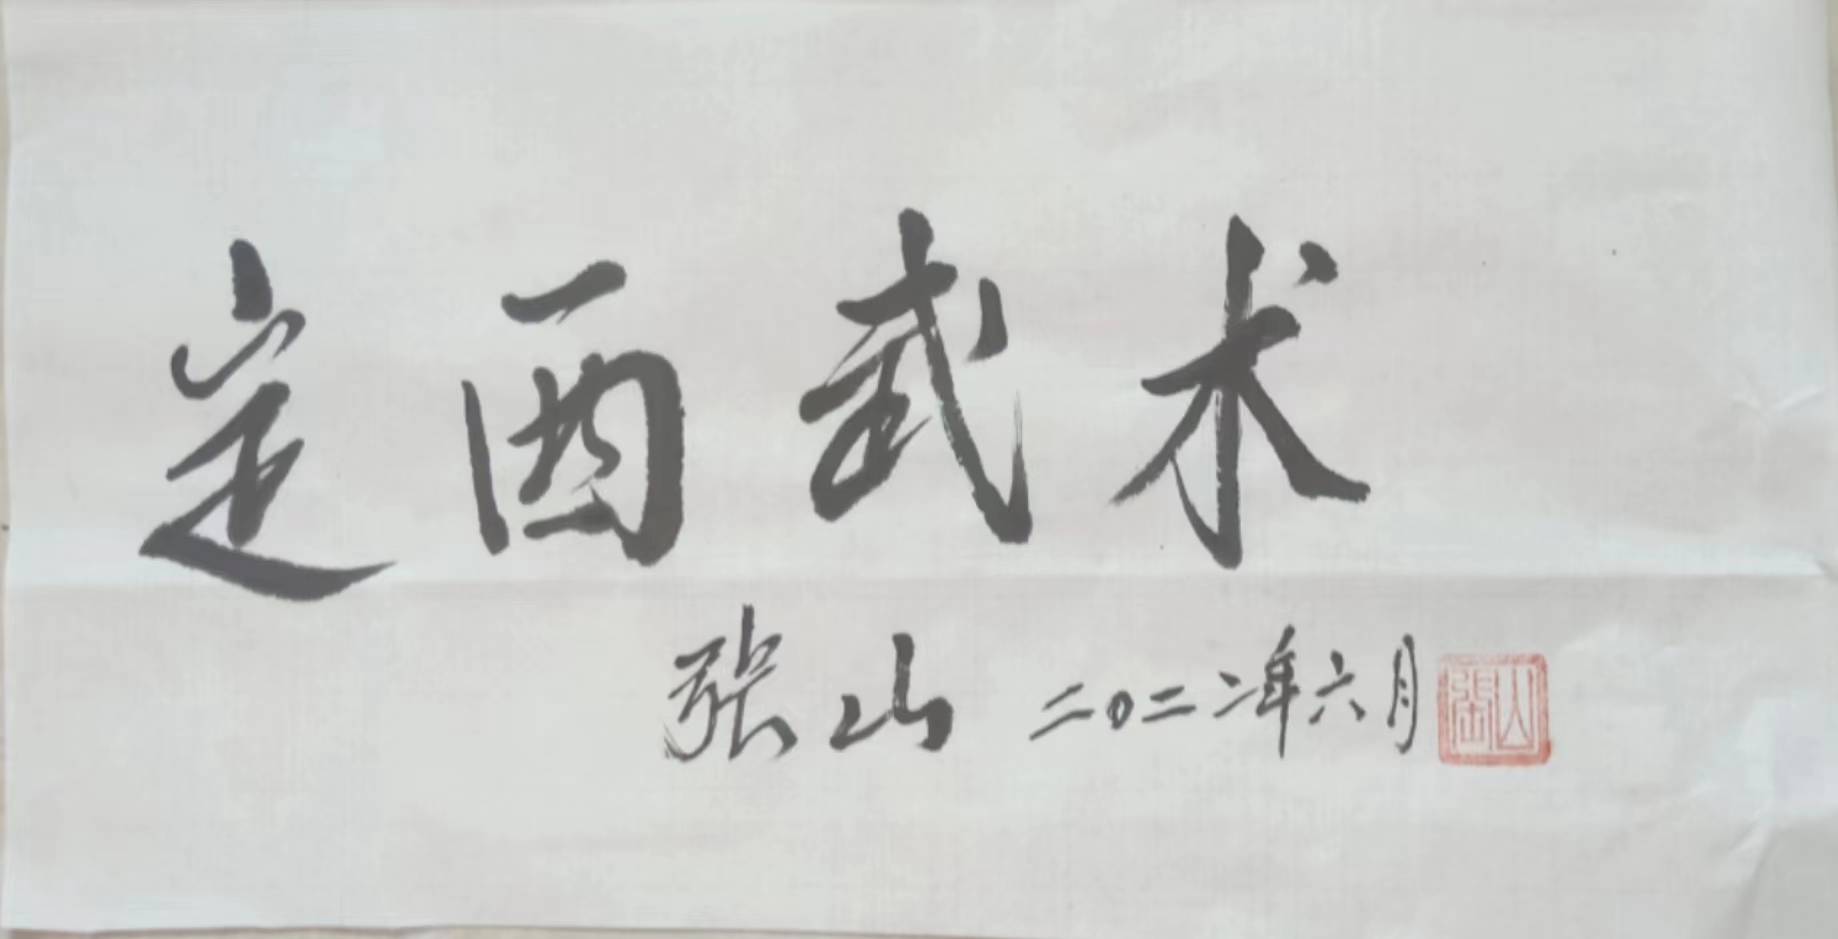 定西武术
张山 二〇二二年六月
张山